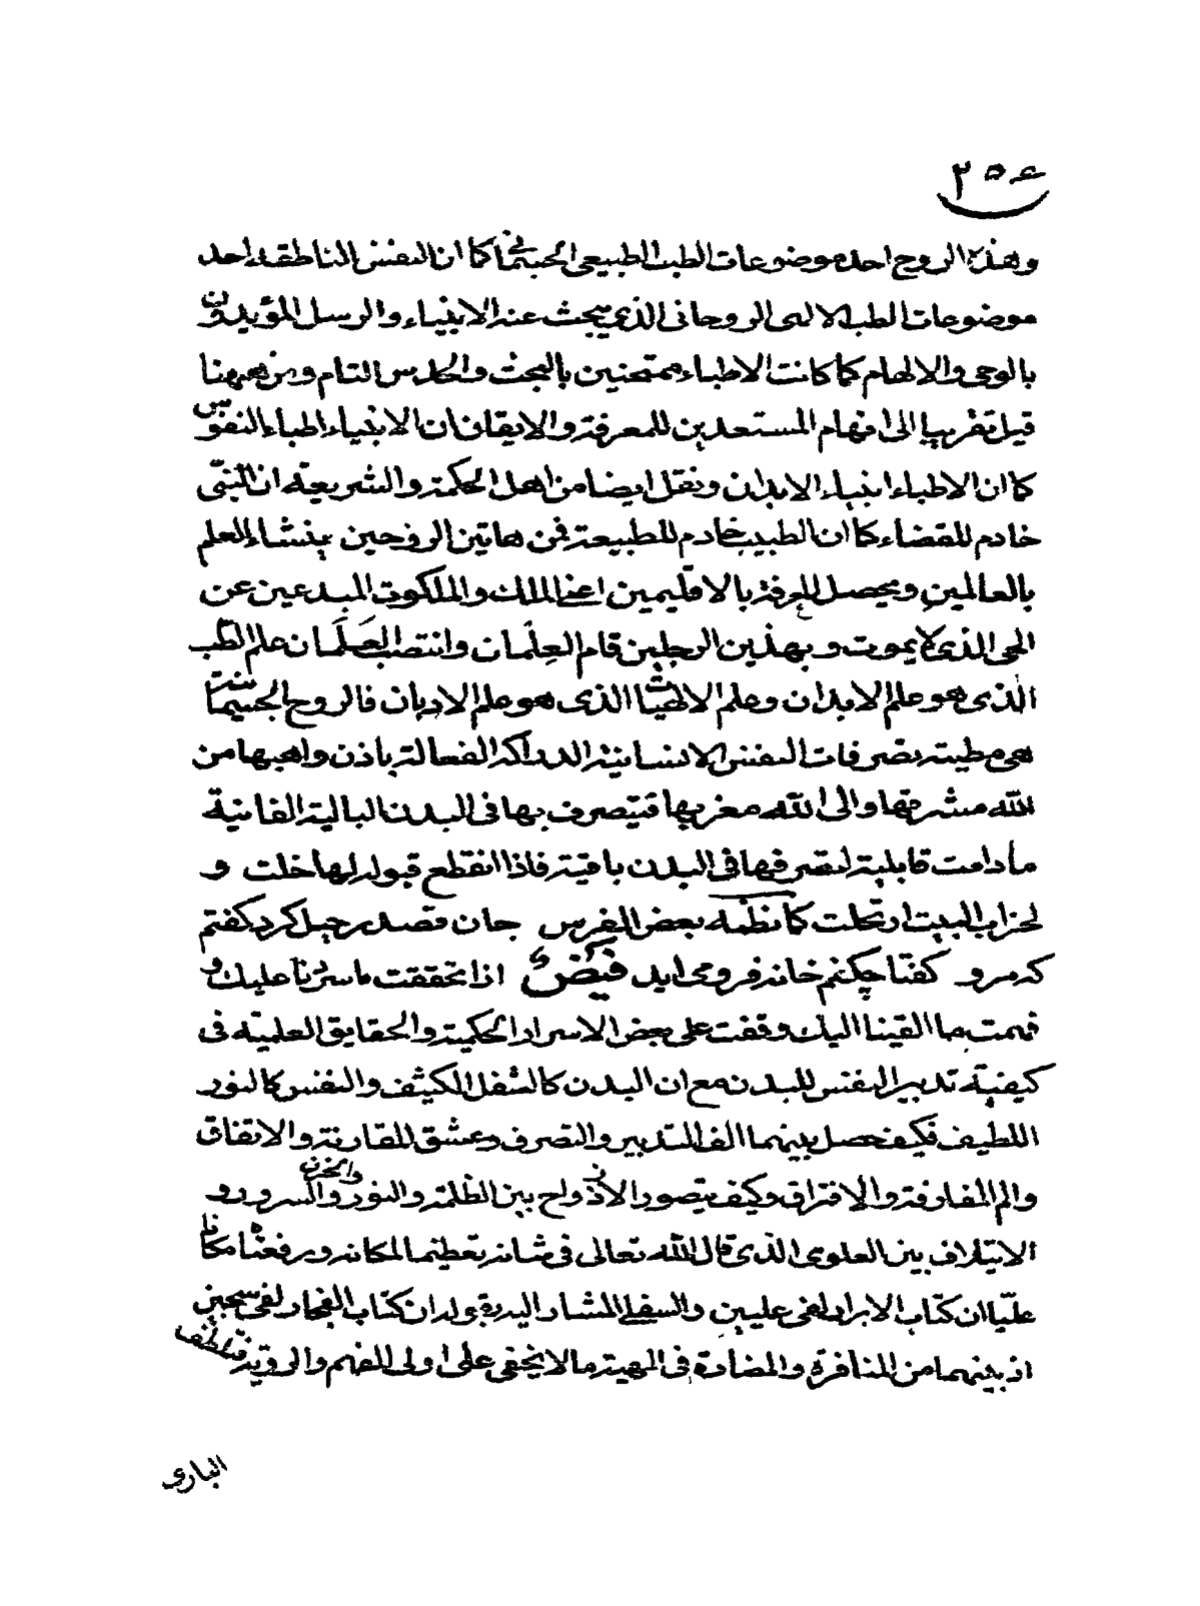 ٢٥٤
وهذه الروح احد موضوعات الطب الطبيعي الجسماني كما ان النفس الناطقة احد
موضوعات الطب الالهى الروحانى الذى يبحث عنه الانبياء والرسل المؤيدون
بالوحى والالهام كما كانت الاطباء ممتحنين بالبحث والحدس التام ومن ههنا
قيل تقريبا الى افهام المستعدين للمعرفة والايقان ان الانبياء اطباء النفوس
كما ان الاطباء انبياء الابدان ونقل ايضا من اهل الحكمة والشريعة ان النبّى
خادم للقضاء كما ان الطبيب خادم للطبيعة فمن هاتين الروحين ينشاء العلم
بالعالمين ويحصل المعرفة بالاقليمين اعنى الملك والملكوت المبدعين عن
الحى الذى لا يموت وبهذين الرجلين قام العِلمان وانتصب العَلَمان علم الطب
الذى هو علم الابدان وعلم الالهيات الذى هو علم الاديان فالروح الجسمانية
هى مطية تصرفات النفس الانسانية الدراكة الفعالة باذن واهبها من
الله مشرقها والى الله مغربها فيتصرف بها فى البدن البالية الفانية
ما دامت قابلية لتصرفها فى البدن باقية فاذا انقطع قبوله لها خلت و
لخراب البيت ارتحلت كما نظمه بعض الفرس جان قصد رحيل كرد كفتم
كه مرو كفتا چكنم خانه فرو مى ايد فيض اذا تحققت ما سردنا عليك و
فهمت ما القينا اليك وقفت على بعض الاسرار الحكمية والحقايق العلمية فى
كيفية تدبير النفس للبدن مع ان البدن كالثفل الكثيف والنفس كالنور
اللطيف فكيف حصل بينهما الف التدبير والتصرف وعشق المقارنة والاتفاق
والم المفارقة والافتراق وكيف يتصور الازدواج بين الظلمة والنور والحزن والسرور و
الايتلاف بين العلوى الذى قال الله تعالى فى شانه تعظيما لمكانه ورفعناه مكانا
عليّا ان كتاب الابرار لفى عليين والسفلى المشار اليه بقوله ان كتاب الفجار لفى سجين
اذ بينهما من المنافرة والمضادة فى المهية ما لا يخفى على اولى الفهم والروية فتلطف
البارى